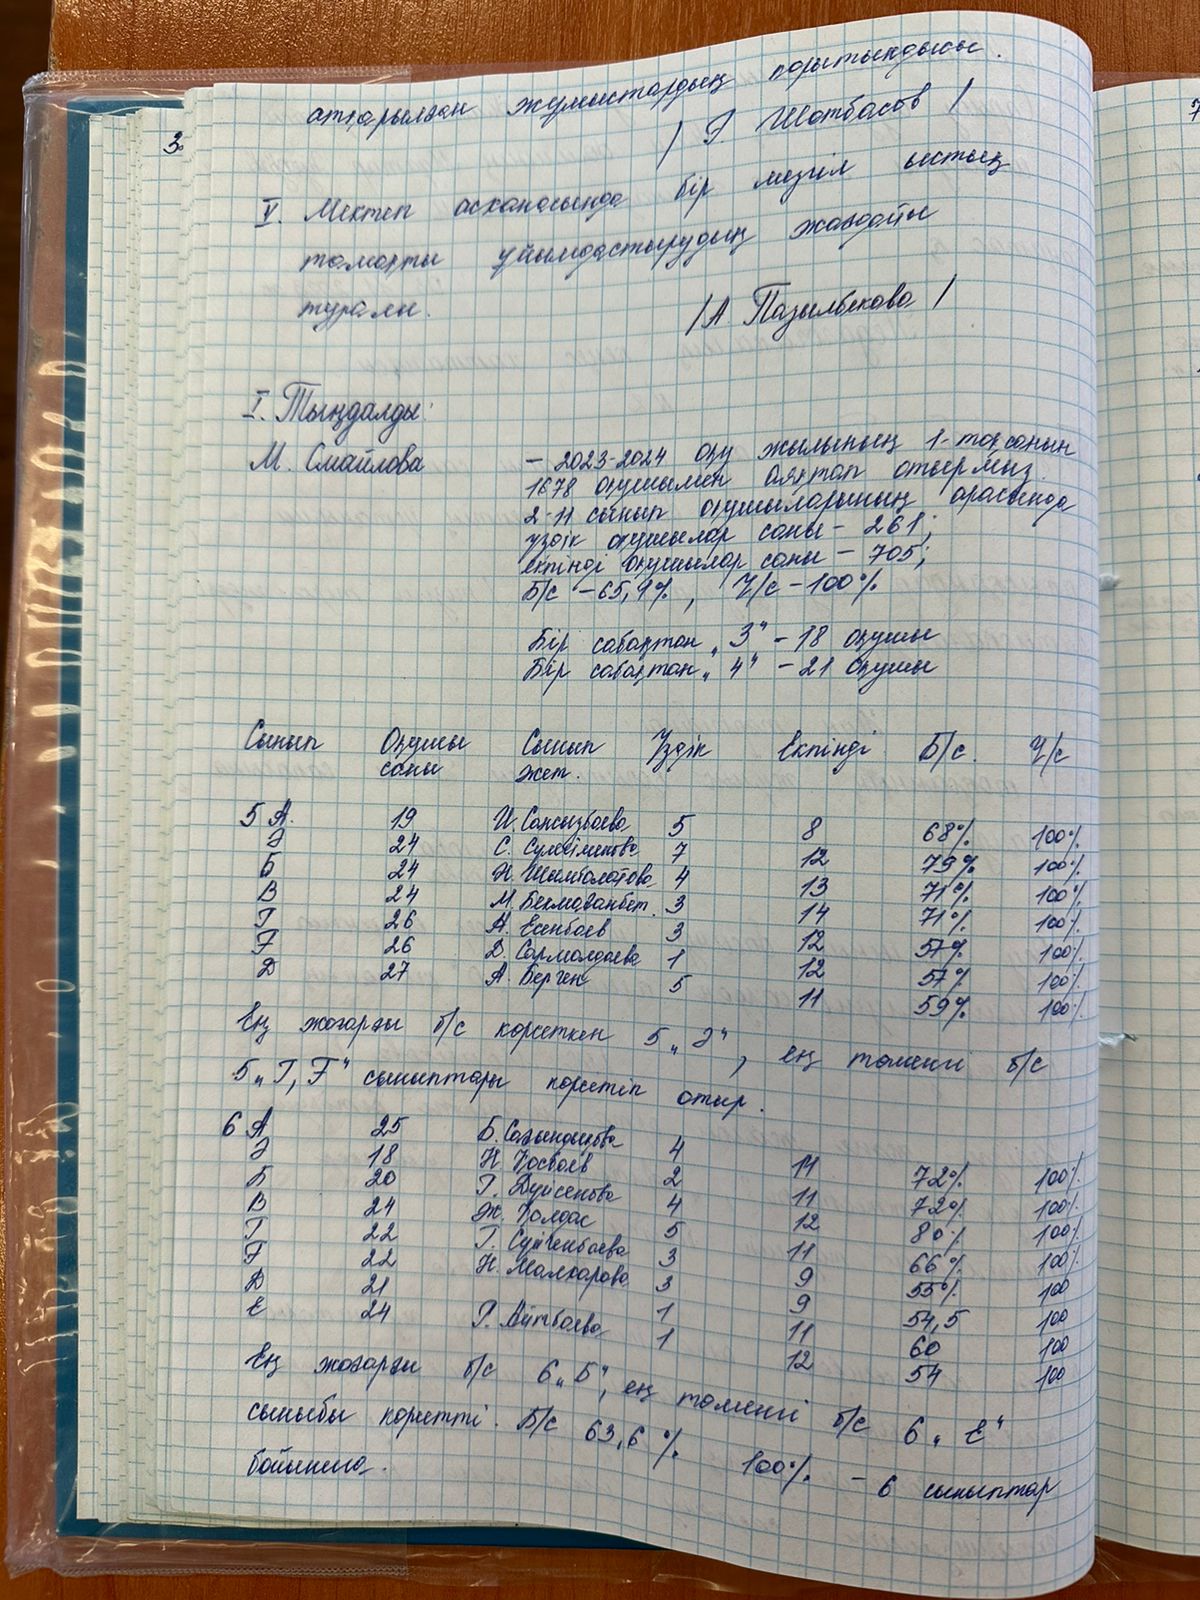 атқарылған жұмыстардың қорытындысы.
3.
/ Г. Шотбасов /
V. Мектеп асханасында бір мезгіл ыстық
тамақты ұйымдастырудың жағдайы
туралы.
/ А. Пазылбекова /
I. Тыңдалды:
М. Смайлова – 2023-2024 оқу жылының 1-тоқсанын
1678 оқушымен аяқтап отырмыз.
2-11 сынып оқушыларының арасында
үздік оқушылар саны – 261;
екпінді оқушылар саны – 705;
Б/с – 65,9%, Ү/с – 100%
Бір сабақтан „3“ – 18 оқушы
Бір сабақтан „4“ – 21 оқушы
Сынып Оқушы саны Сынып жет. Үздік Екпінді Б/с. Ү/с
5 А. 19 И. Сансызбаева 5 8 68% 100%
Ә 24 С. Сулейменова 7 12 79% 100%
Б 24 Н. Шамболатова 4 13 71% 100%
В 24 М. Бекмаганбет. 3 14 71% 100%
Г 26 А. Есенбаев 3 12 57% 100%
Ғ 26 Д. Сармолдаева 1 12 57% 100%
Д 27 А. Берген 5 11 59% 100%
Ең жоғарғы б/с көрсеткен 5 „Ә“, ең төменгі б/с
5 „Г, Ғ“ сыныптары көрсетіп отыр.
6 А 25 Б. Сағындықова 4 14 72% 100%
Ә 18 Н. Қосбаев 2 11 72% 100%
Б 20 Г. Дүйсенова 4 12 80% 100%
В 24 Ж. Қолдас 5 11 66% 100%
Г 22 Г. Сүгенбаева 3 9 55% 100
Ғ 22 Н. Малкарова 3 9 54,5 100
Д 21 1 11 60 100
Е 24 Р. Айтбаева 1 12 54 100
Ең жоғарғы б/с 6 „Б“, ең төменгі б/с 6 „Е“
сыныбы көрсетті. Б/с 63,6% 100% – 6 сыныптар
бойынша.